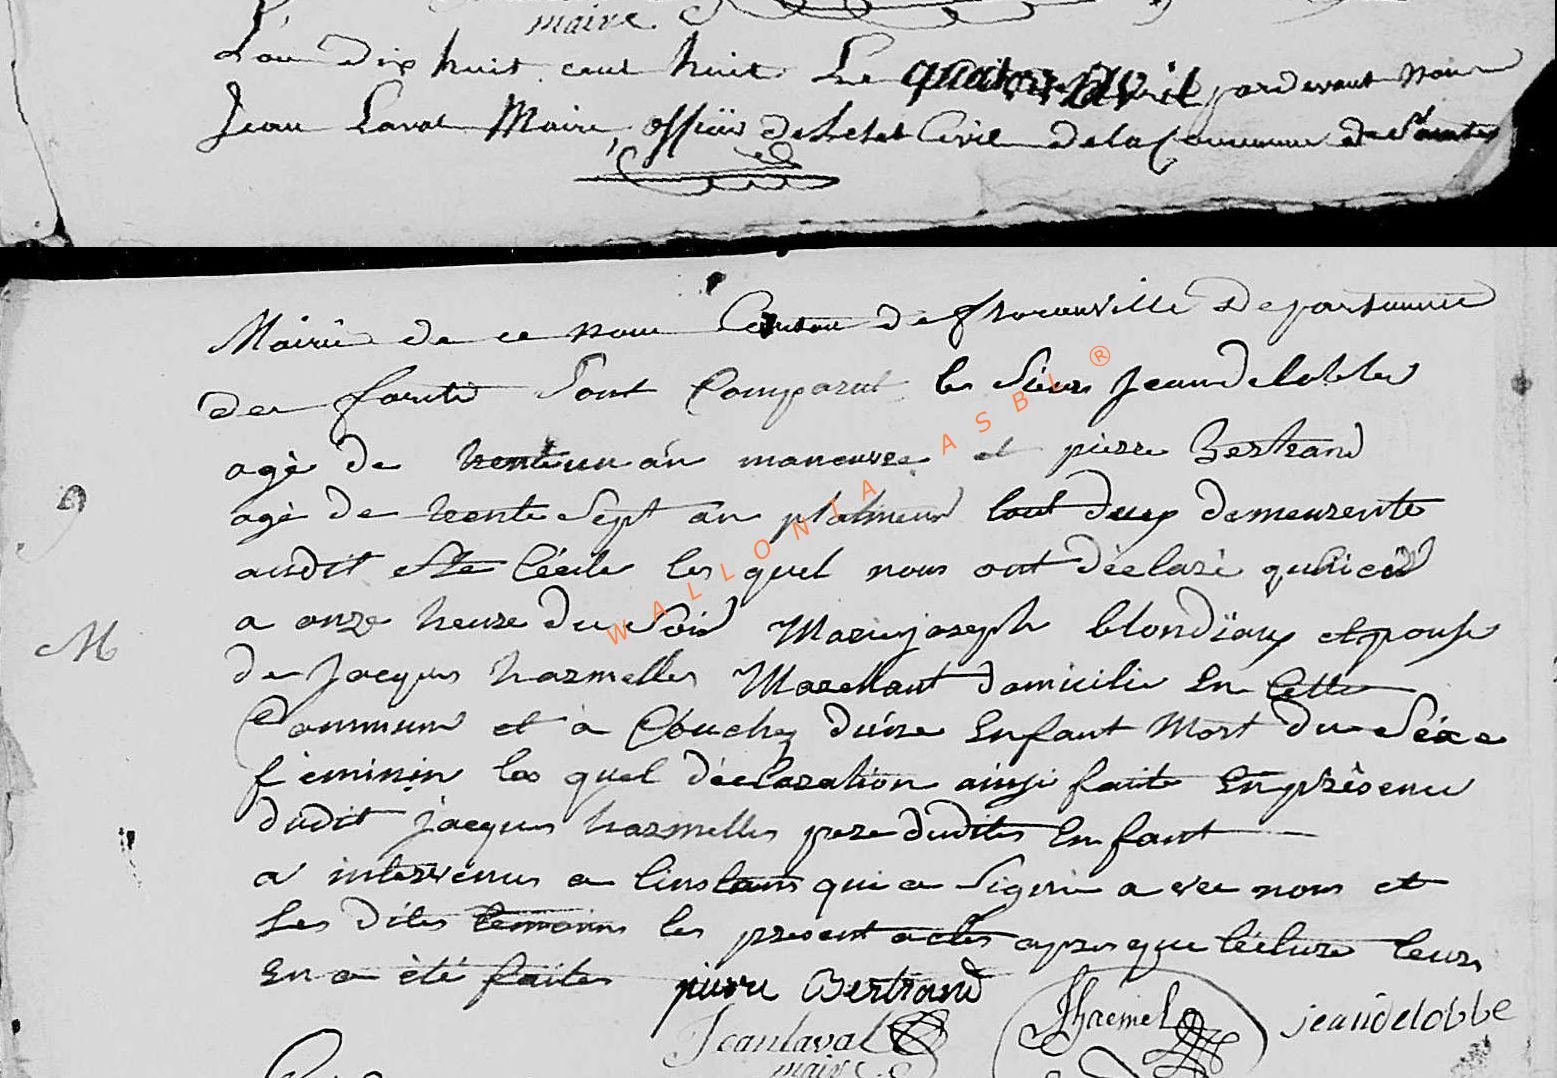 maire
L'an dix huit cent huit Le quatorz avril pardevant nous
Jean Laval Maire, officie de Letat Civil de la Commune de Sainte
Mairie de ce nom Canton de florenville Departement
des forets Sont Comparut les Sieurs Jean delobbe
agé de trente un an maneuvre et pierre Bertrand
agé de trente Sept an plafineur tout deux demeurente
audit Ste Cécile les quel nous ont déclaré quhier
a onze heure du Soir Marie joseph blondiaux epouse
de Jacques harmelles Marchant domicilie En Cette
Commune et à Couchez d'une Enfant Mort du Séxe
féminin las quel déclaration ainsi faite En présence
dudit jacques harmelles pere dudites Enfant
a intervenus a linstans qui a Signé avec nous et
Les dites temoins les present actes apres que lécture leurs
En a été faites pierre Bertrand
Jhremel jeandelobbe
Jean laval
maire
9
M
WALLONIA ASBL ®